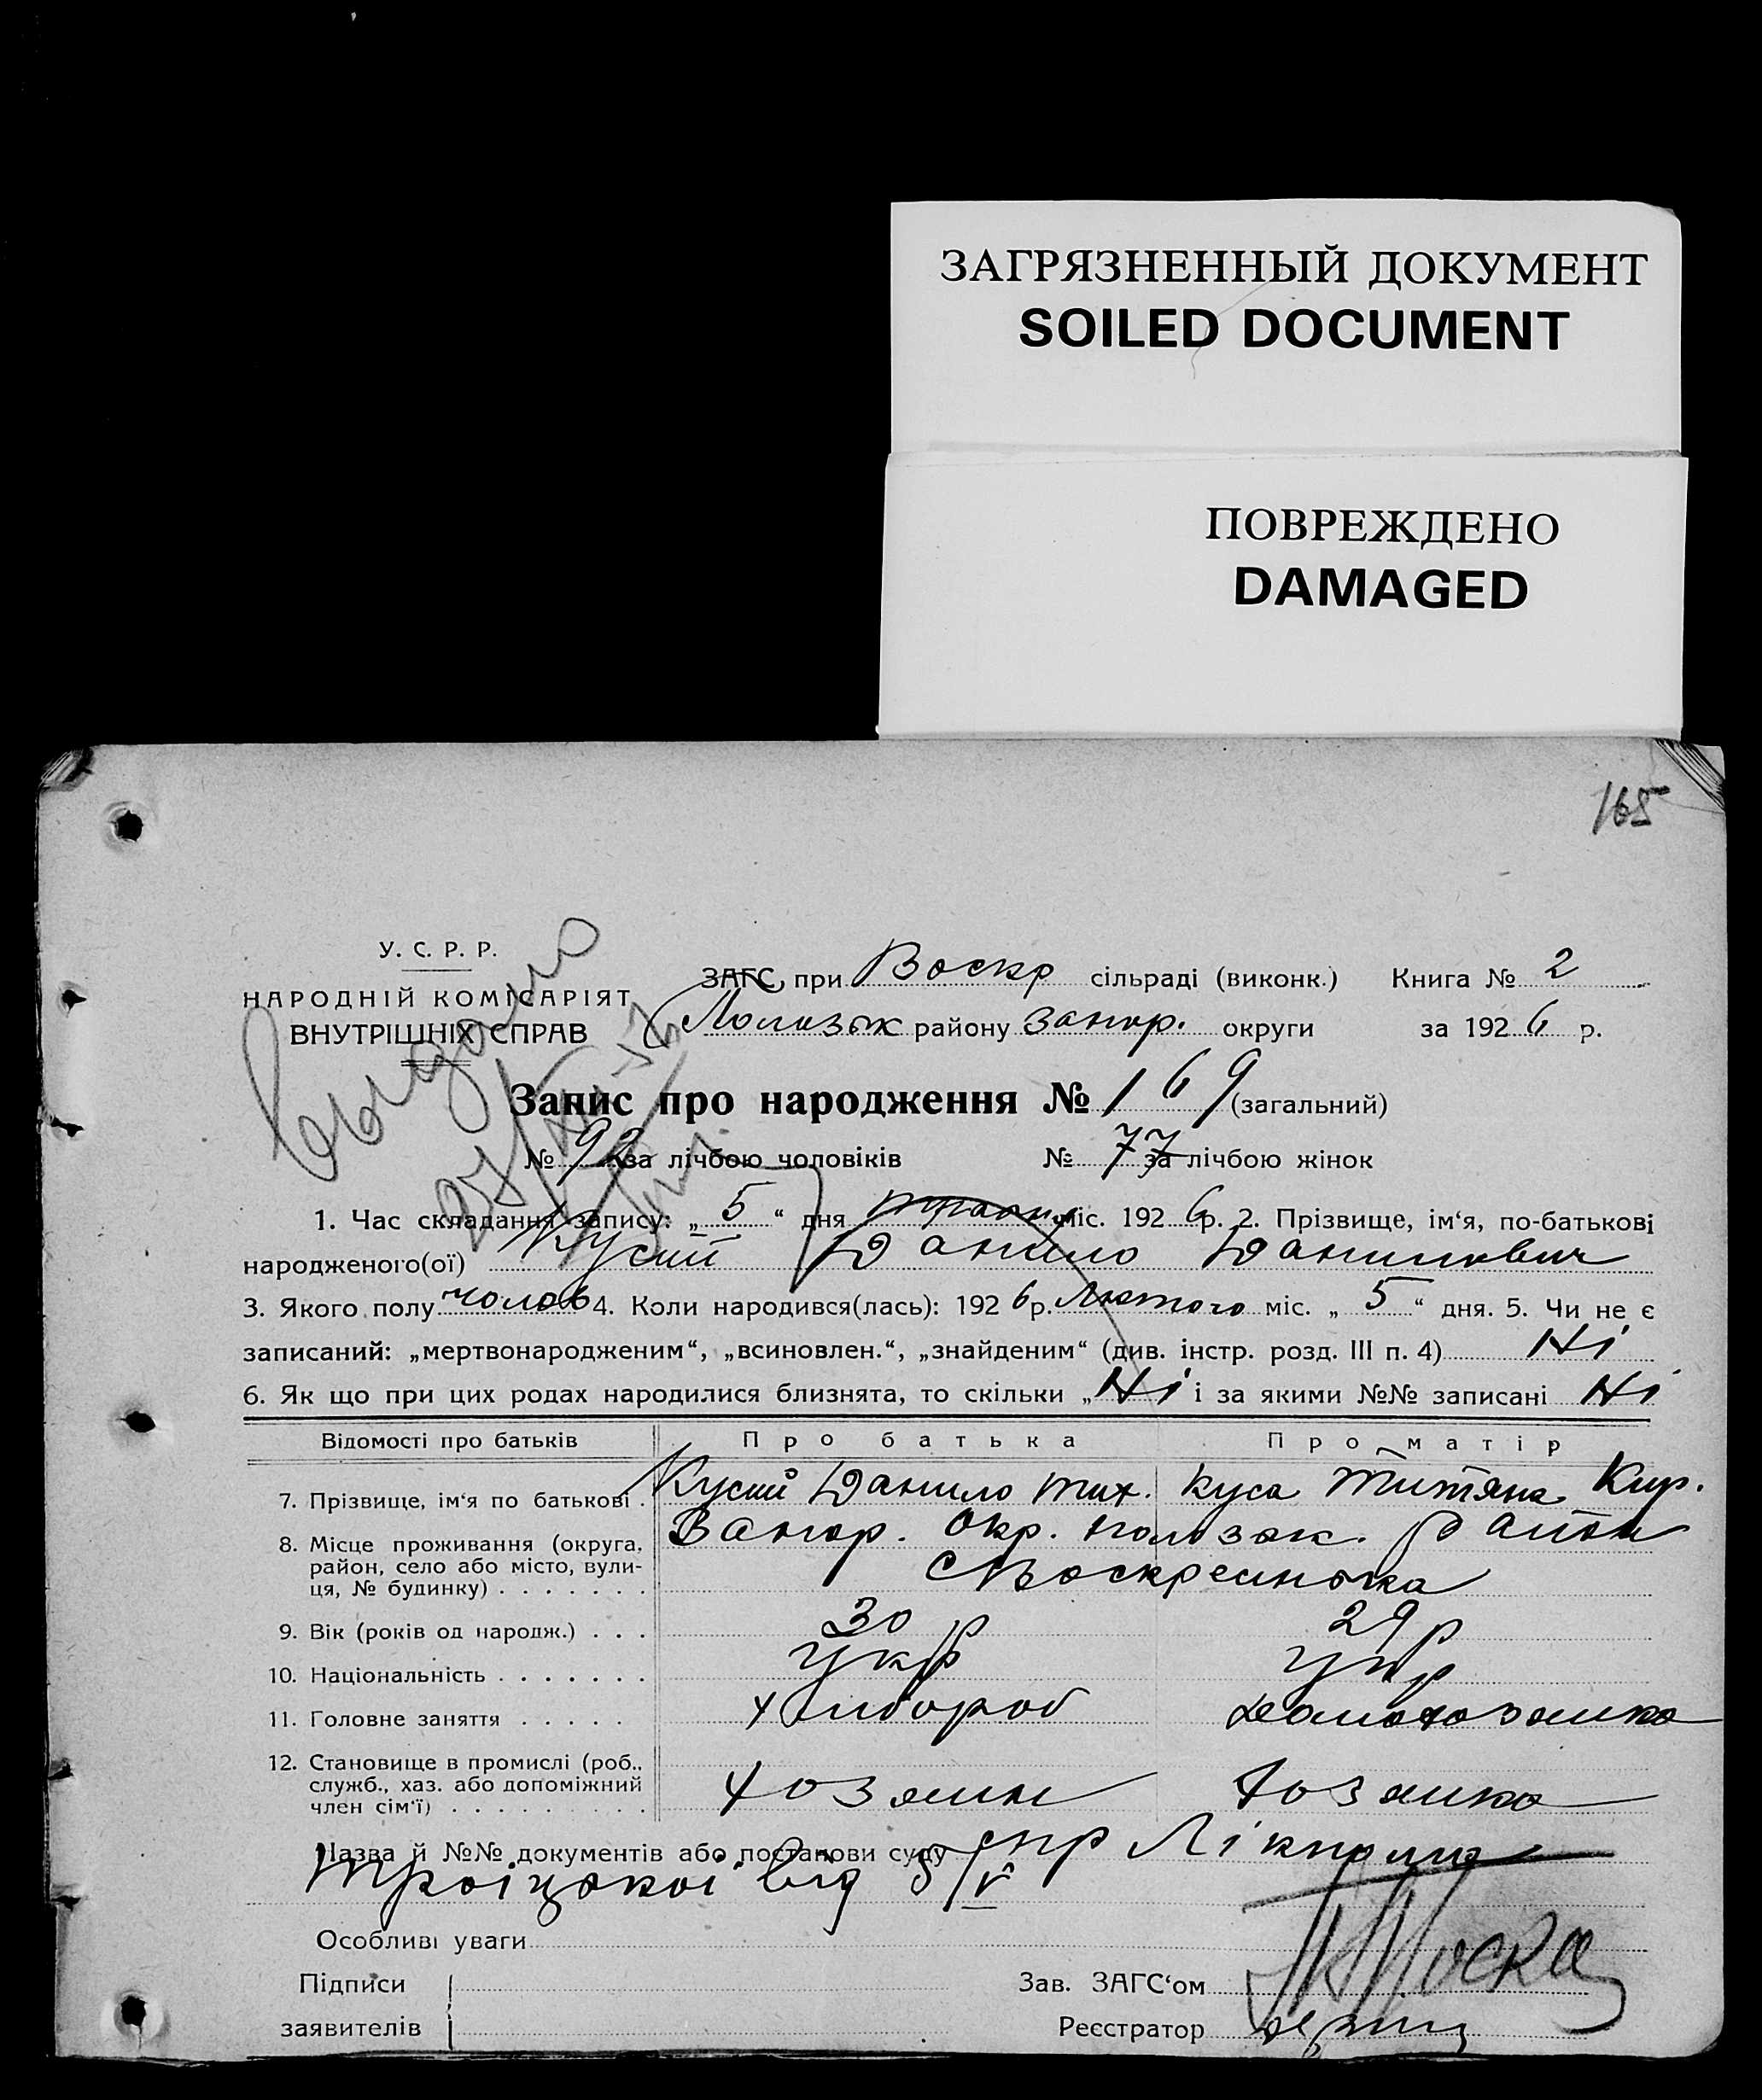 ЗАГРЯЗНЕННЫЙ ДОКУМЕНТ
SOILED DOCUMENT
ПОВРЕЖДЕНО
DAMAGED
165
У. С. Р. Р.
НАРОДНІЙ КОМІСАРІЯТ
ВНУТРІШНІХ СПРАВ
ЗАГС при Воскр сільраді (виконк.) Книга № 2
району Запор. округи за 1926 р.
Запис про народження № 169 (загальний)
№ 92 за лічбою чоловіків № 77 за лічбою жінок
1. Час складання запису: „ 5 “ дня травн міс. 1926 р. 2. Прізвище, ім‘я, по-батькові
народженого(ої) Кусий Данило Данилович
3. Якого полу чолов 4. Коли народився(лась): 1926 р. Лютого міс. „ 5 “ дня. 5. Чи не є
записаний: „мертвонародженим“, „всиновлен.“, „знайденим“ (див. інстр. розд. III п. 4) Ні
6. Як що при цих родах народилися близнята, то скільки „ Ні і за якими №№ записані Ні
Відомості про батьків Про батька Про матір
7. Прізвище, ім‘я по батькові . Кусий Данило Тих. Куса Титяна Кир.
8. Місце проживання (округа, район, село або місто, вулиця, № будинку) . . . . . . . Запор. Окр. район
с Воскресинка
9. Вік (років од народж.) . . . 30 р 29 р
10. Національність . . . . . . . укр укр
11. Головне заняття . . . . . хлібороб домохозяйка
12. Становище в промислі (роб., служб., хаз. або допоміжний член сім‘ї) . . . . . . . . . хозяин хозяйка
Назва й №№ документів або постанови суду спр Лікпома
Троіцької від 5/V
Особливі уваги
Підписи
заявителів
Зав. ЗАГС‘ом
Реєстратор
Выдано